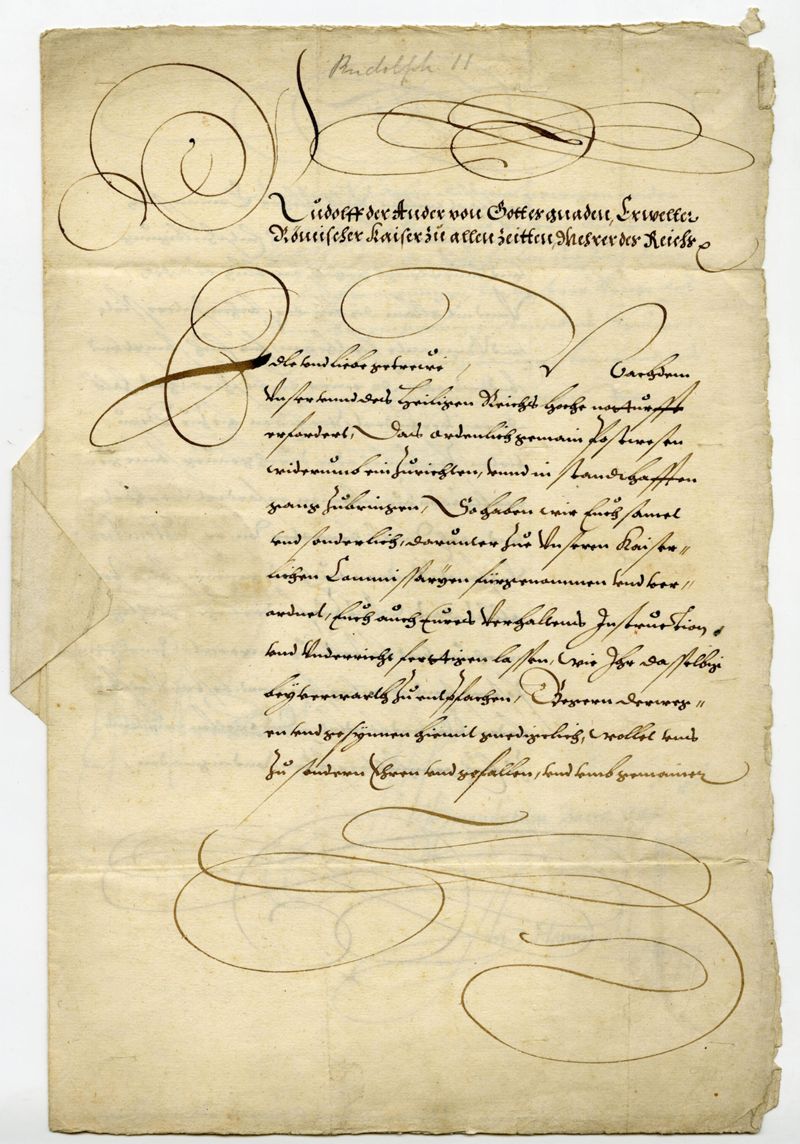 Rudolph II
Rudolff der Ander von Gottes gnaden, Erwelter
Römischer Kaiser zu allen Zeitten, Mehrer des Reichs
Edle vnd liebe getrewe, Nachdem
Vnser vnnd des Heiligen Reichs hohe notturfft
erfordert, Das ordenlich gemain Postwesen
widerumb ein zurichten, vnnd in standhafften
gang zubringen, So haben wir Euch samet
vnd sonderlich, darunter zue Vnseren Kaiser=
lichen Commissaryen fürgenommen vnd ver=
ordnet, Euch auch Eures Verhaltens Instruction
vnd Vnderricht fertigen lassen, wie Ihr dasselbig
beyverwarth zu entpfachen, Begern derweg=
en vnd gesynnen hiemit gnedigelich, wollet vns
zu sondern Ehren vnd gefallen, vnd vmb gemainer